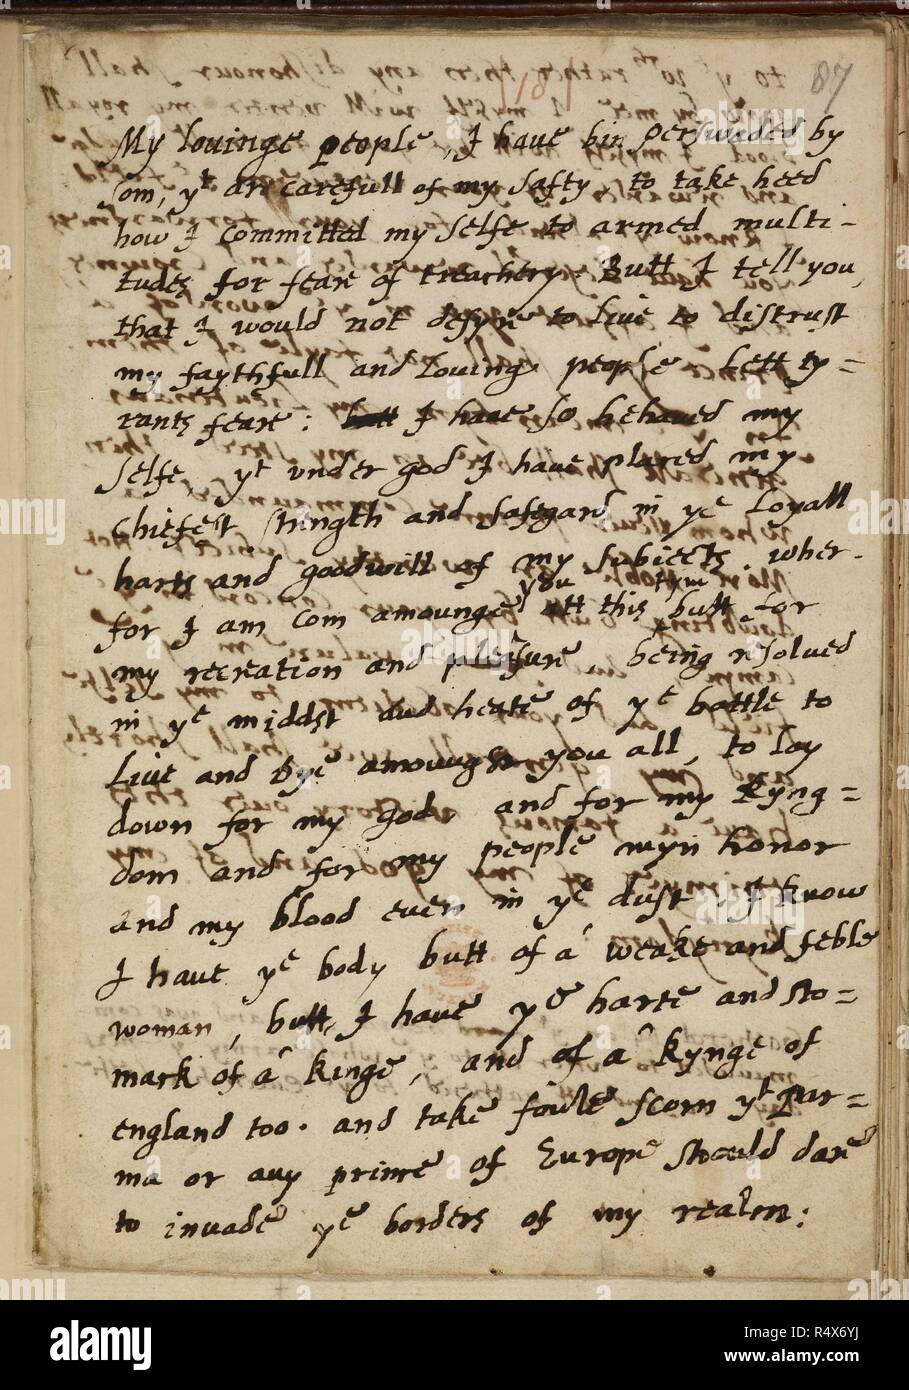 87
My louinge people, I have bin perswaded by
som, yt are carefull of my safty to take heed
how I committed my selfe to armed multi-
tudes for fear of treachery. Butt I tell you,
that I would not desyre to live to distrust
my faythfull and loving people Lett ty=
rants feare: butt I have so behaued my
selfe, yt vnder god I have placed my
chiefest strength and safegard in ye Loyall
harts and goodwill of my subiects. wher-
you tym
for I am com amounge att this butt for
my recreation and pleasure being resolved
in ye middst and heate of ye battle to
Live and Dye amoungst you all, to lay
down for my god and for my Kyng=
dom and for my people myn honor
and my blood even in ye dust. I know
I have ye body butt of a weake and feble
woman, butt I have ye harte and sto=
mack of a kinge, and of a kynge of
england too. and take foule scorn yt Par=
ma or any prince of Europe should dare
to invade ye borders of my realm:
alamy
Image ID: R4X6YJ
www.alamy.com